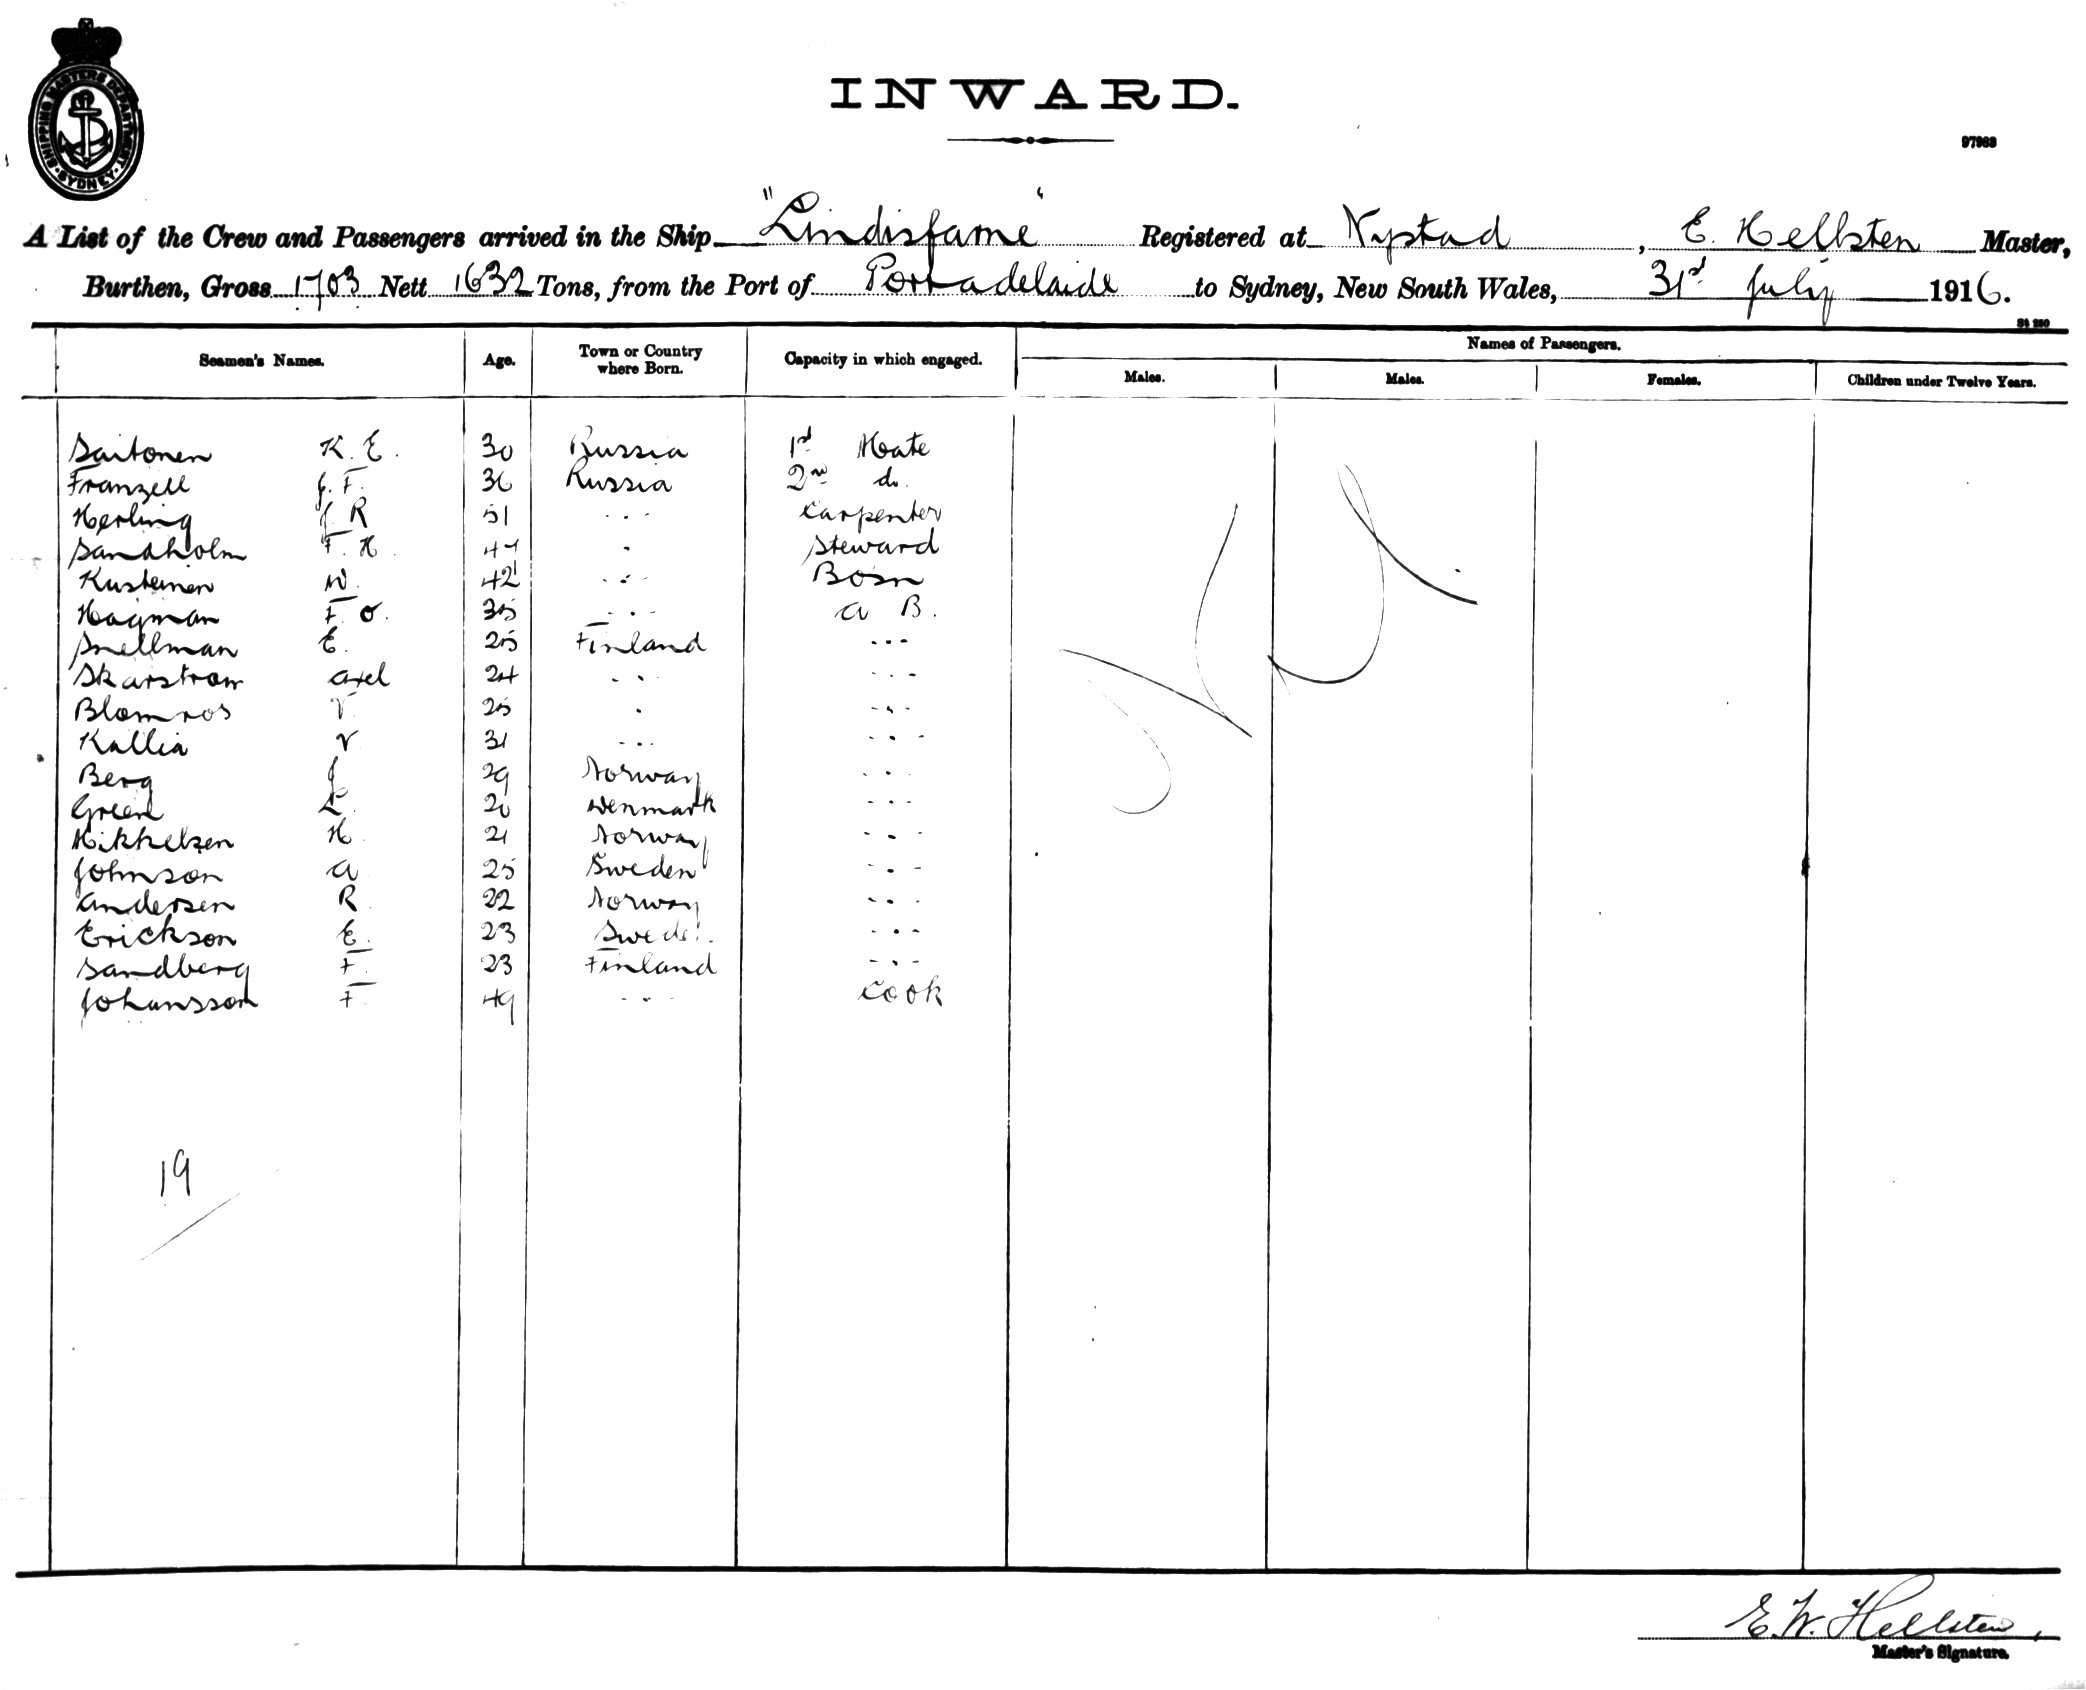 SHIPPING MASTERS DEPARTMENT
SYDNEY
INWARD.
97963
A List of the Crew and Passengers arrived in the Ship "Lindisfarne" Registered at Nystad, E. Hellsten Master,
Burthen, Gross 1703 Nett 1632 Tons, from the Port of Port adelaide to Sydney, New South Wales, 31st July 1916.
Seamen's Names. Age. Town or Country where Born. Capacity in which engaged. Names of Passengers.
Males. Males. Females. Children under Twelve Years.
Saitonen K. E. 30 Russia 1st Mate
Franzell J. F. 36 Russia 2nd do.
Herling J R 51 " Carpenter
Sandholm F. H. " Steward
Kusteinen W. 42 " Bosn
Hagman F. O. 35 " A B.
Snellman E. 25 Finland "
Skarstrom Axel 24 " "
Blomros V. 25 " "
Kallia V 31 " "
Berg J 29 Norway "
Green L. 20 Denmark "
Mikkelsen H. 21 Norway "
Johnson A 25 Sweden "
Andersen R. 22 Norway "
Erickson E. 23 Swede. "
Sandberg F. 23 Finland "
Johansson F. 49 " Cook
Nil
19
E. W. Hellsten,
Master's Signature.